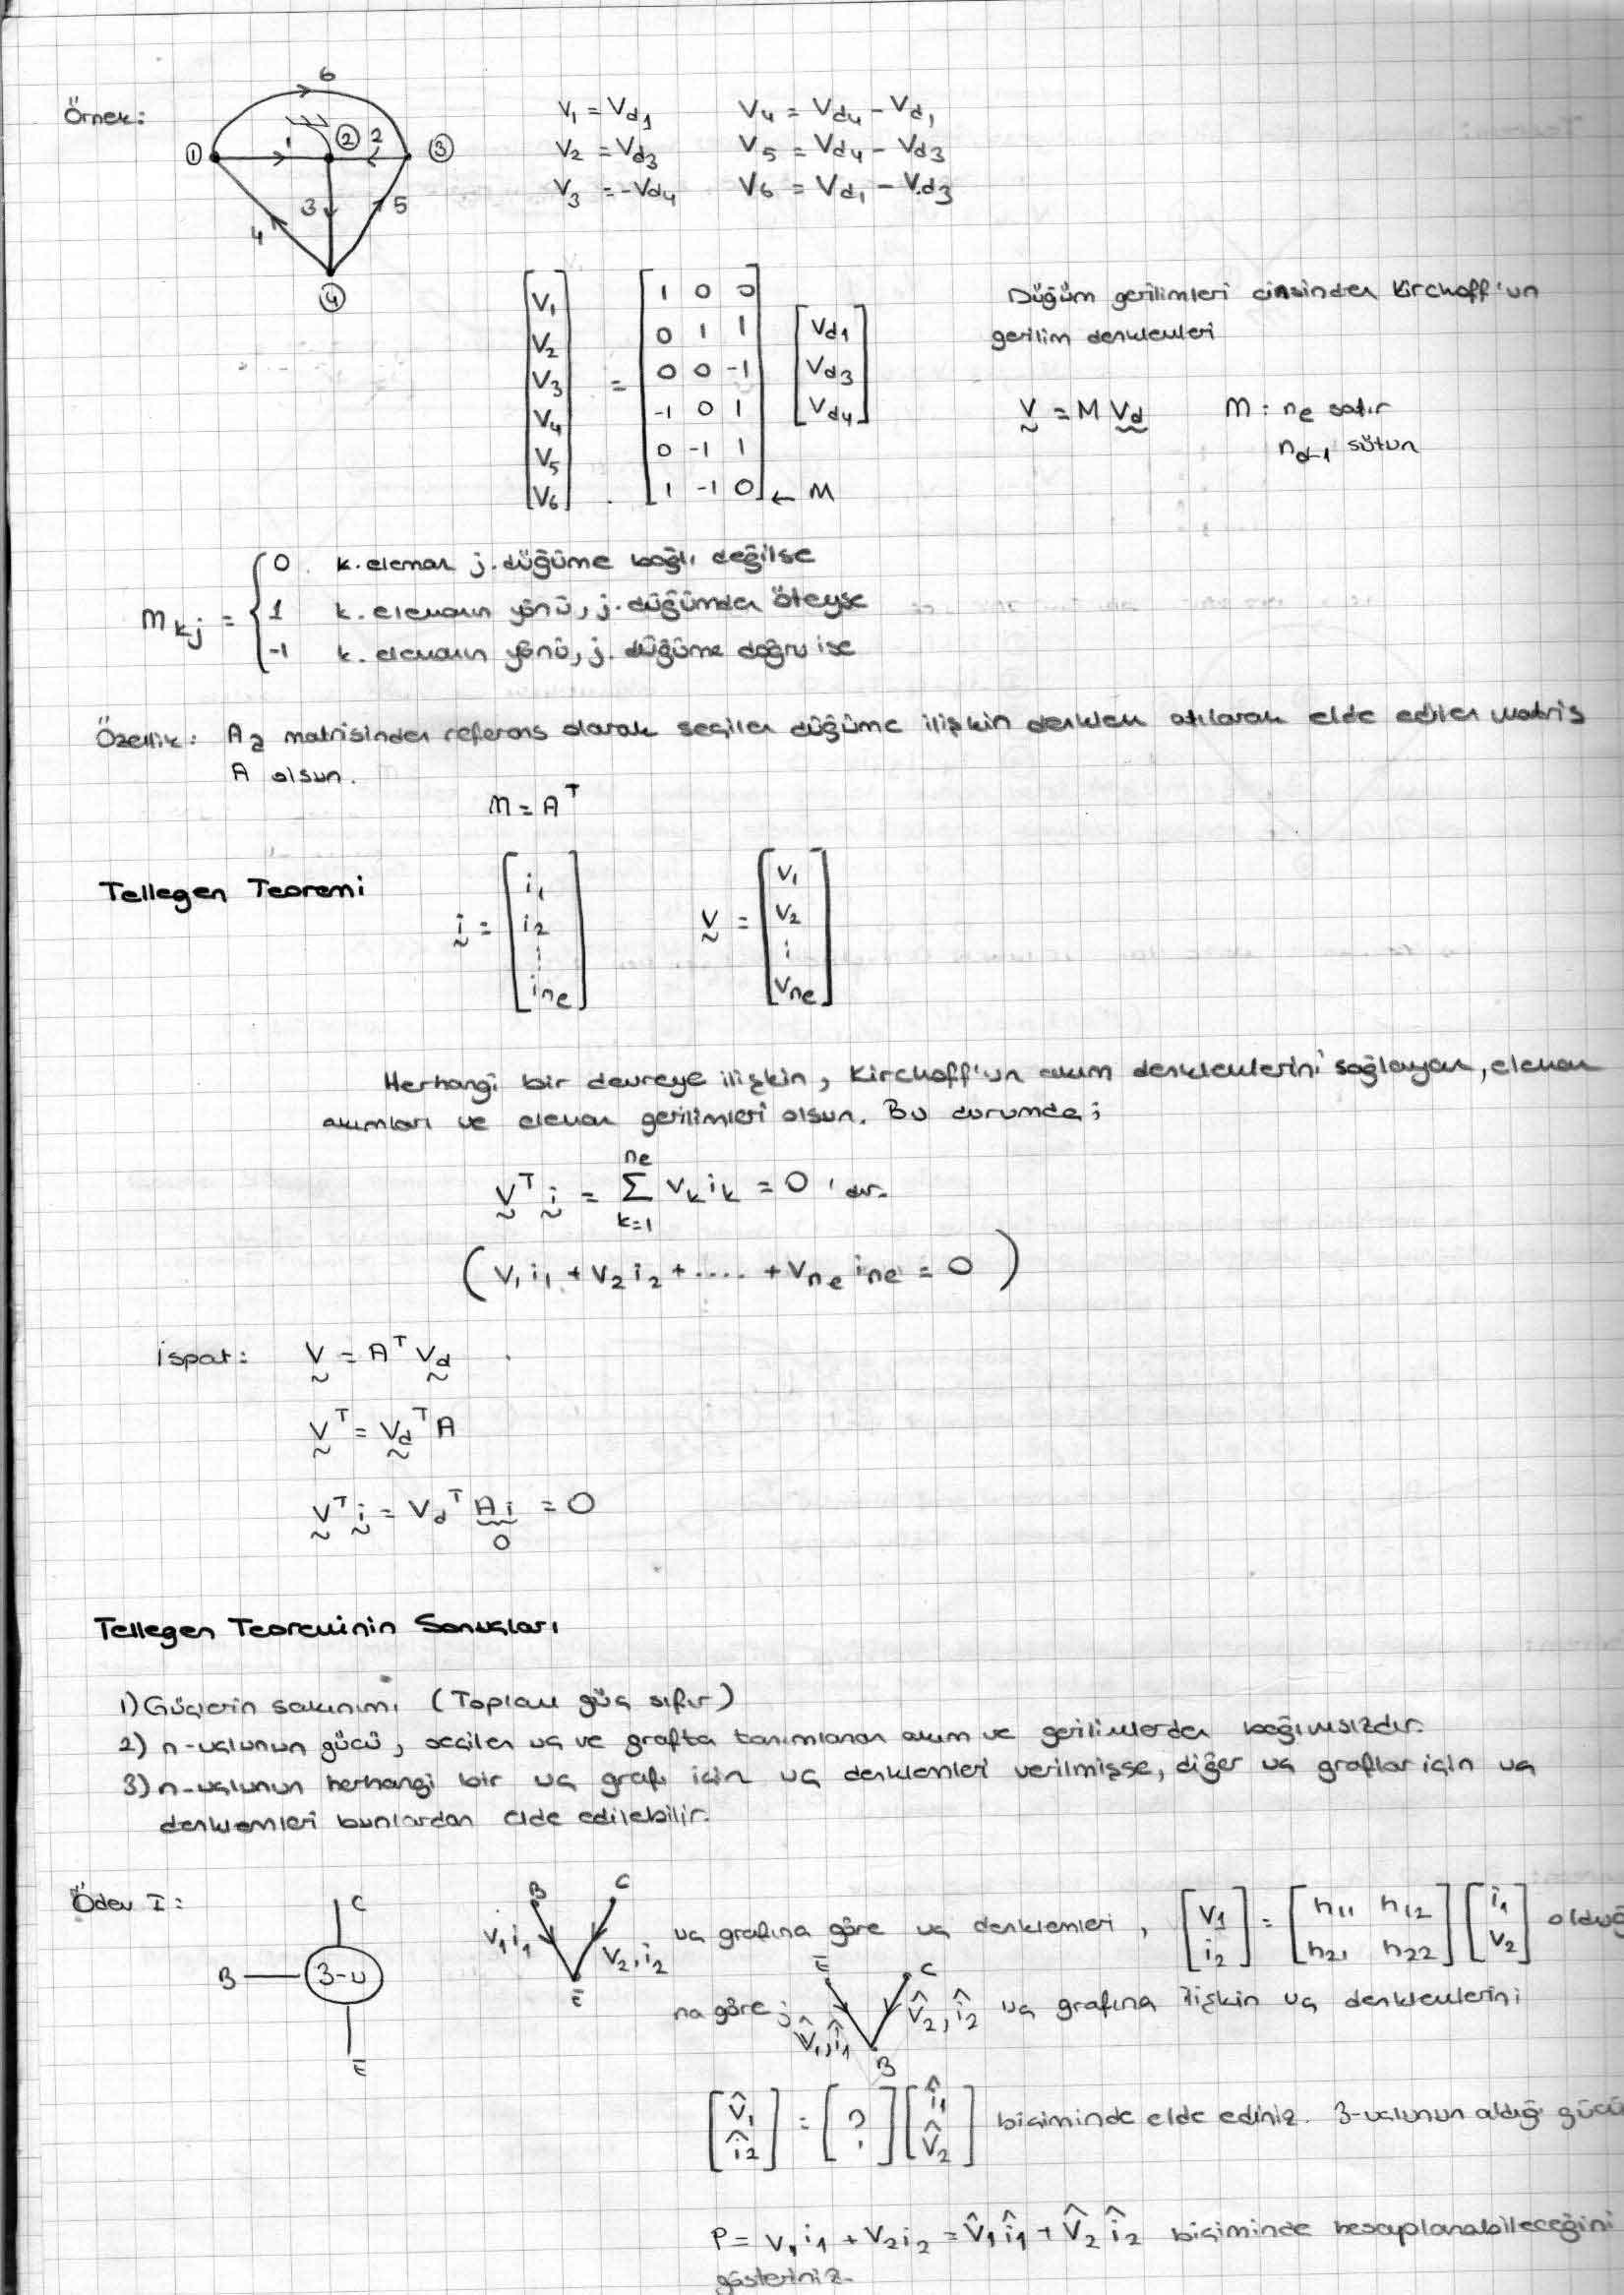 Örnek:
6
① 1 ② 2 ③
3 5
4
④
V₁ = Vd1 V₄ = Vd4 - Vd1
V₂ = Vd3 V₅ = Vd4 - Vd3
V₃ = -Vd4 V₆ = Vd1 - Vd3
[V₁] [1 0 0]
[V₂] [0 1 1] [Vd1]
[V₃] = [0 0 -1] [Vd3]
[V₄] [-1 0 1] [Vd4]
[V₅] [0 -1 1]
[V₆] [1 -1 0] ← M
Düğüm gerilimleri cinsinden Kirchoff'un
gerilim denklemleri
V = M Vd M : ne satır
nd-1 sütun
mkj = { 0 k. eleman j. düğüme bağlı değilse
1 k. elemanın yönü, j. düğümden öteyse
-1 k. elemanın yönü, j. düğüme doğru ise
Özellik: Aa matrisinden referans olarak seçilen düğüme ilişkin denklem atılarak elde edilen matris
A olsun.
M = Aᵀ
Tellegen Teoremi
i = [i₁ i₂ ⋮ ine] V = [V₁ V₂ ⋮ Vne]
Herhangi bir devreye ilişkin, Kirchoff'un akım denklemlerini sağlayan, eleman
akımları ve eleman gerilimleri olsun. Bu durumda;
Vᵀ i = Σ (k=1, ne) Vk ik = 0 'dır.
(V₁i₁ + V₂i₂ + .... + Vne ine = 0)
İspat: V = Aᵀ Vd
Vᵀ = Vdᵀ A
Vᵀ i = Vdᵀ A i = 0
0
Tellegen Teoreminin Sonuçları
1) Güçlerin sakınımı (Toplam güç sıfır)
2) n-uçlunun gücü, seçilen uç ve grafta tanımlanan akım ve gerilimlerden bağımsızdır.
3) n-uçlunun herhangi bir uç grafı için uç denklemleri verilmişse, diğer uç graflar için uç
denklemleri bunlardan elde edilebilir.
Ödev I:
C
B 3-u
E
B C
V₁ i₁ V₂, i₂
E
uç grafına göre uç denklemleri, [V₁ i₂] = [h11 h12 h21 h22] [i₁ V₂] olduğ
na göre; E C
V̂₁, î₁ V̂₂, î₂
B
uç grafına ilişkin uç denklemlerini
[V̂₁ î₂] = [?] [î₁ V̂₂] biçiminde elde ediniz. 3-uçlunun aldığı gücü
P = V₁ i₁ + V₂ i₂ = V̂₁ î₁ + V̂₂ î₂ biçiminde hesaplanabileceğini
gösteriniz.